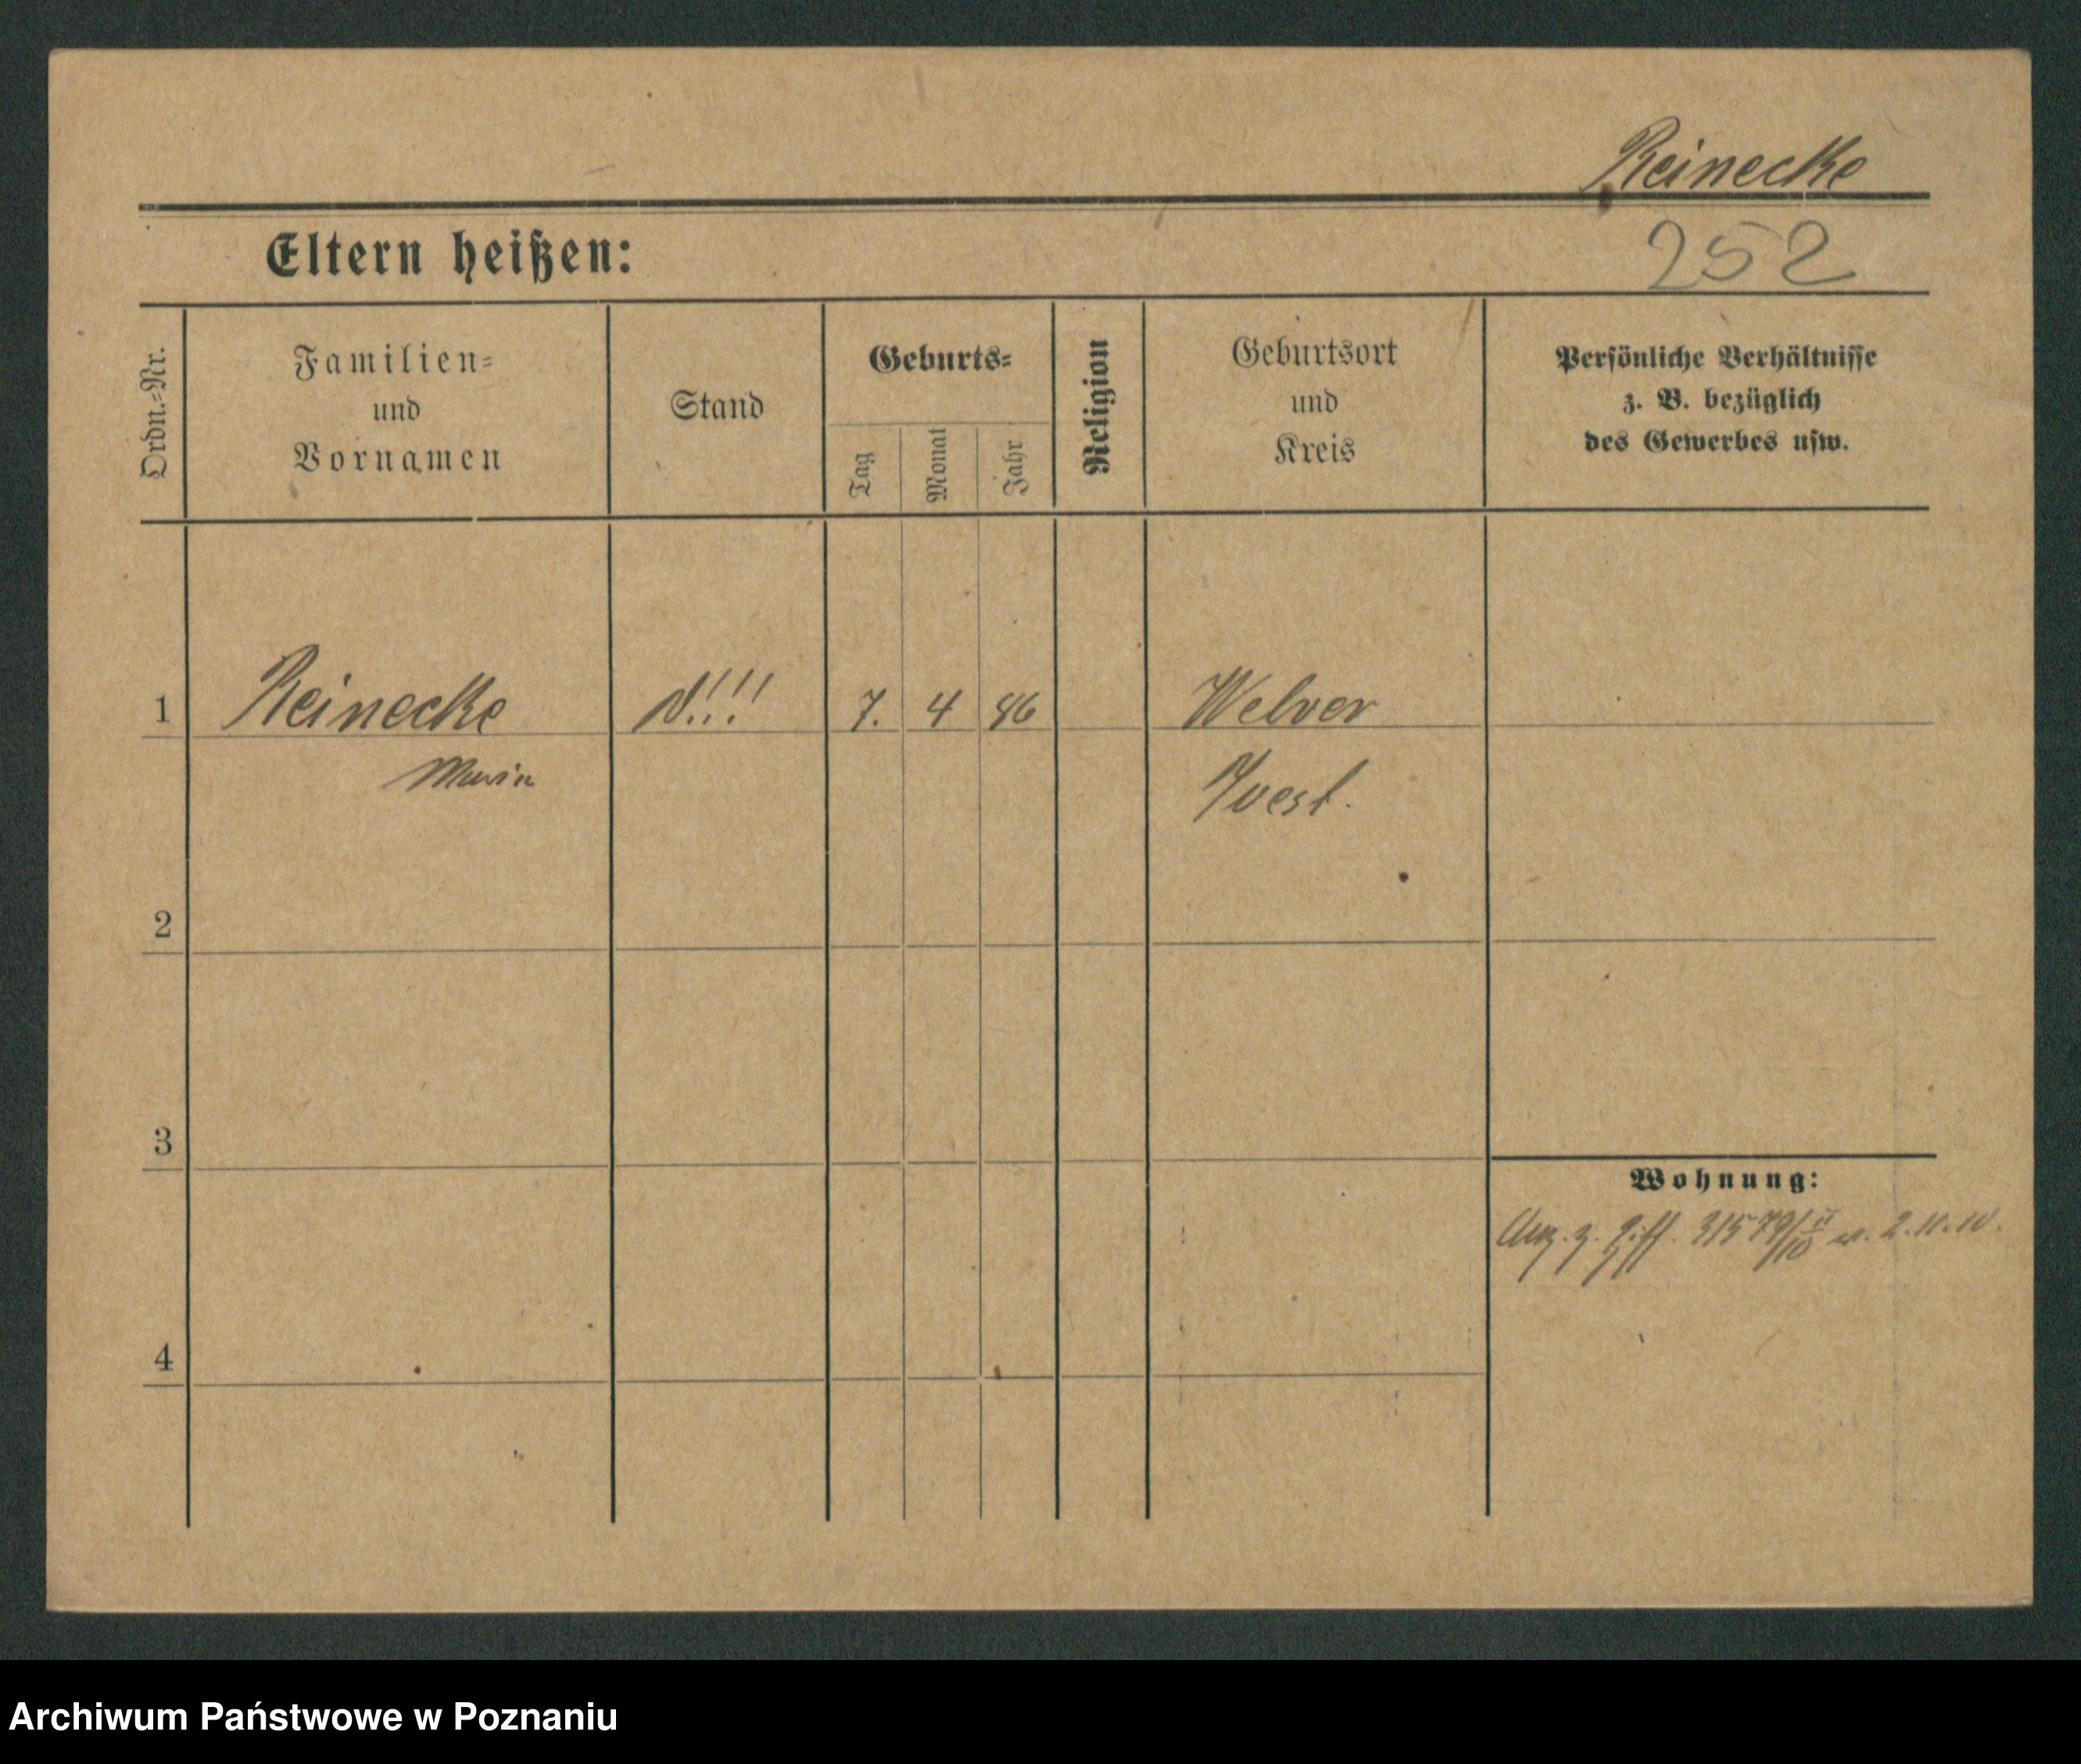 Reinecke
Eltern heißen:
252
Ordn.-Nr.
Familien-
und
Vornamen
Stand
Geburts-
Tag
Monat
Jahr
Religion
Geburtsort
und
Kreis
Persönliche Verhältnisse
z. B. bezüglich
des Gewerbes usw.
1 Reinecke 7. 4 86 Welver
Maria
2
3
Wohnung:
2.11.10.
4
Archiwum Państwowe w Poznaniu